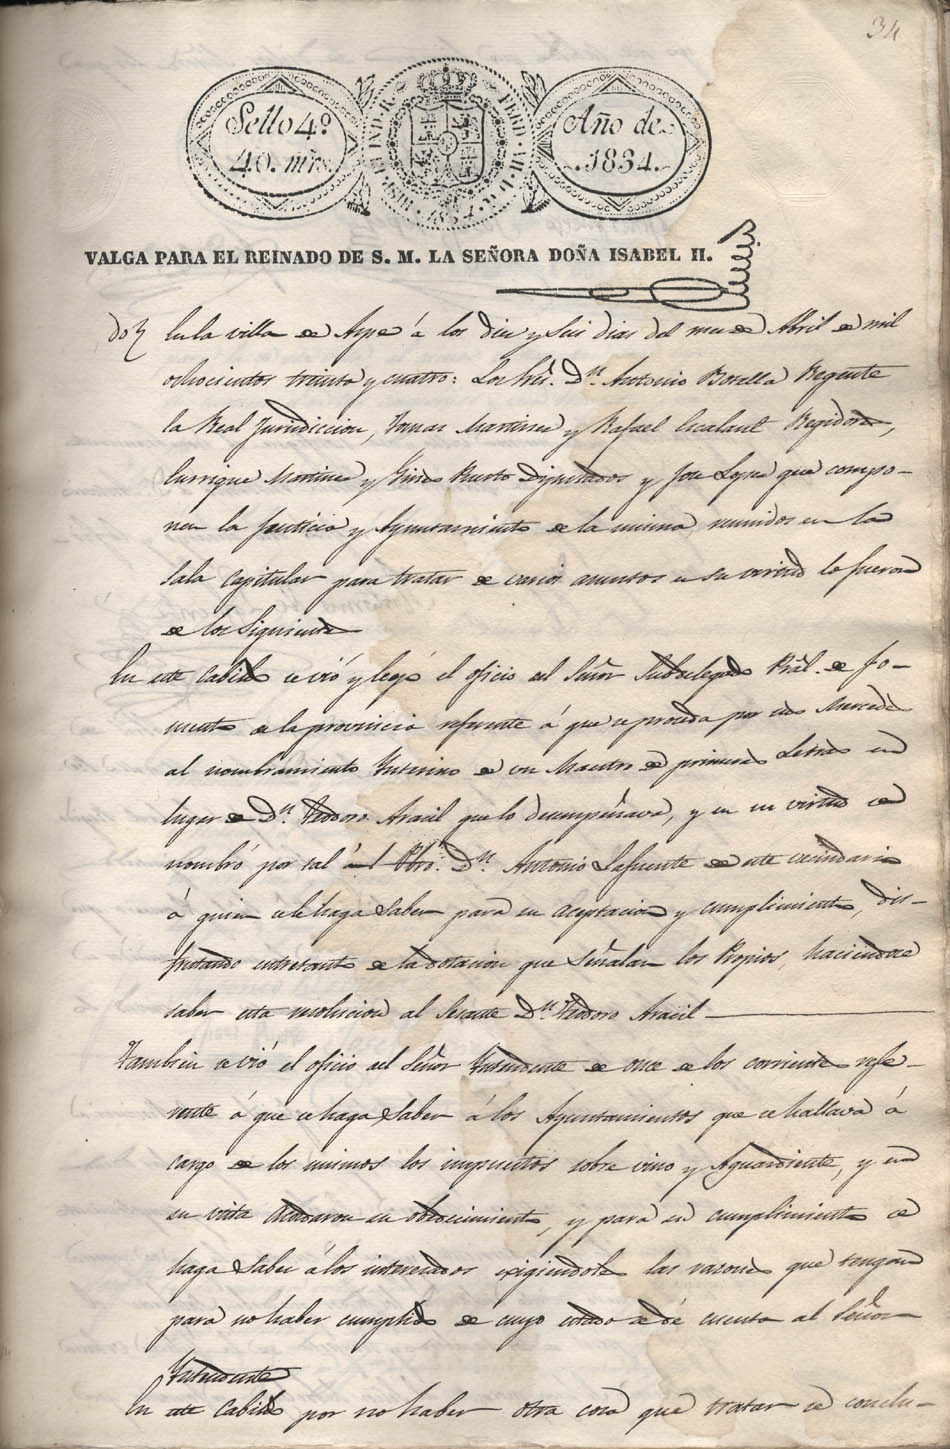 34
Sello 4º
40. mrs.
Año de
1834.
VALGA PARA EL REINADO DE S. M. LA SEÑORA DOÑA ISABEL II.
En la villa de Aspe á los diez y seis dias del mes de Abril de mil
ochocientos treinta y cuatro: Los Sres. Dn. Antonio Botella Regente
la Real Jurisdiccion, Tomas Martinez y Rafael Escalant Regidores,
Enrrique Martinez y Gines Puerto Diputados y Jose Lopez que compo-
nen la Justicia y Ayuntamiento de la misma, reunidos en la
sala capitular para tratar de varios asuntos en su virtud lo fueron
de los siguientes
En este Cabildo se vió y leyó el oficio del Señor Subdelegado Pral. de Fo-
mento de la provincia referente á que se proceda por sus Mercedes
al nombramiento Interino de un Maestro de primeras Letras en
lugar de Dn. Teodoro Aracil que lo desempeñava, y en su virtud se
nombró por tal á el Pbro. Dn. Antonio Lafuente de este vecindario
á quien se le haga saber para su aceptacion y cumplimiento, dis-
frutando entretanto de la dotacion que señalan los Propios, haciendose
saber esta resolucion al Sesante Dn. Teodoro Aracil
Tambien se vió el oficio del Señor Intendente de once de los corrientes refe-
rente á que se haga saber á los Ayuntamientos que se hallava á
cargo de los mismos los impuestos sobre vino y Aguardiente, y en
su vista Acordaron su obedecimiento, y para su cumplimiento se
haga saber á los interesados exigiendole las razones que tengan
para no haber cumplido de cuyo estado se dé cuenta al Señor
Intendente
En este Cabildo por no haber otra cosa que tratar se conclu-